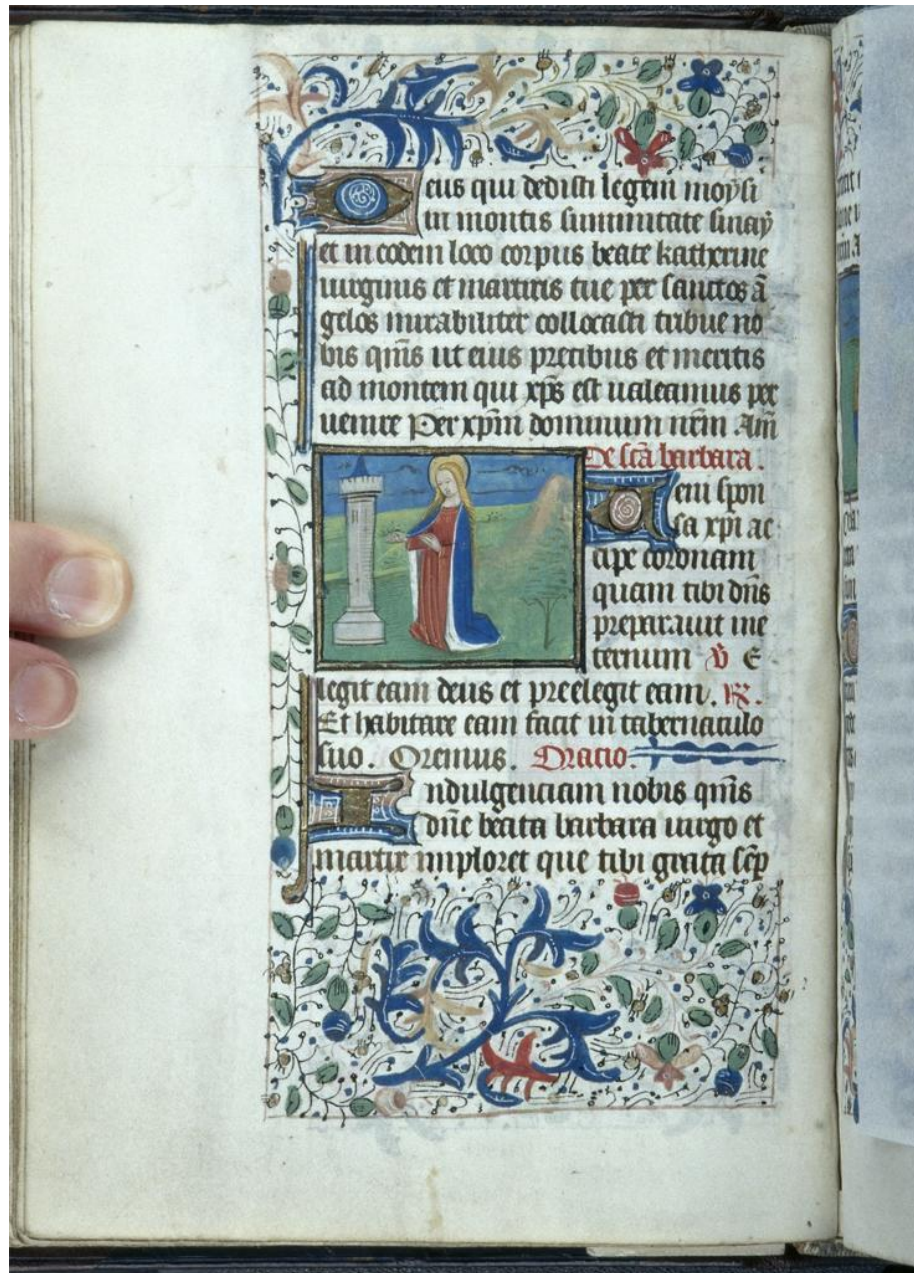 Deus qui dedisti legem moysi
in montis summitate sinay
et in eodem loco corpus beate katherine
uirginis et martiris tue per sanctos ā
gelos mirabiliter collocasti tribue no
bis qm̄s ut eius precibus et meritis
ad montem qui xp̄s est ualeamus per
uenire Per xp̄m dominum nr̄m Am̄
De sc̄a barbara.
Ueni spon
sa xp̄i ac
cipe coronam
quam tibi dn̄s
preparauit in e
ternum ℣ E
legit eam deus et preelegit eam. ℟.
Et habitare eam facit in tabernaculo
suo. Oremus. Oracio.
Indulgenciam nobis qm̄s
dn̄e beata barbara uirgo et
martir imploret que tibi grata sēp